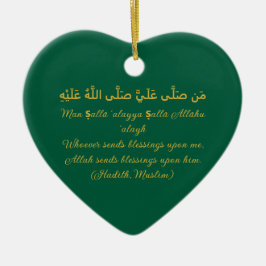 مَن صَلَّى عَلَيَّ صَلَّى اللَّهُ عَلَيْهِ
Man Ṣallā ʿalayya Ṣallā Allāhu
ʿalayh
Whoever sends blessings upon me,
Allah sends blessings upon him.
(Hadith, Muslim)